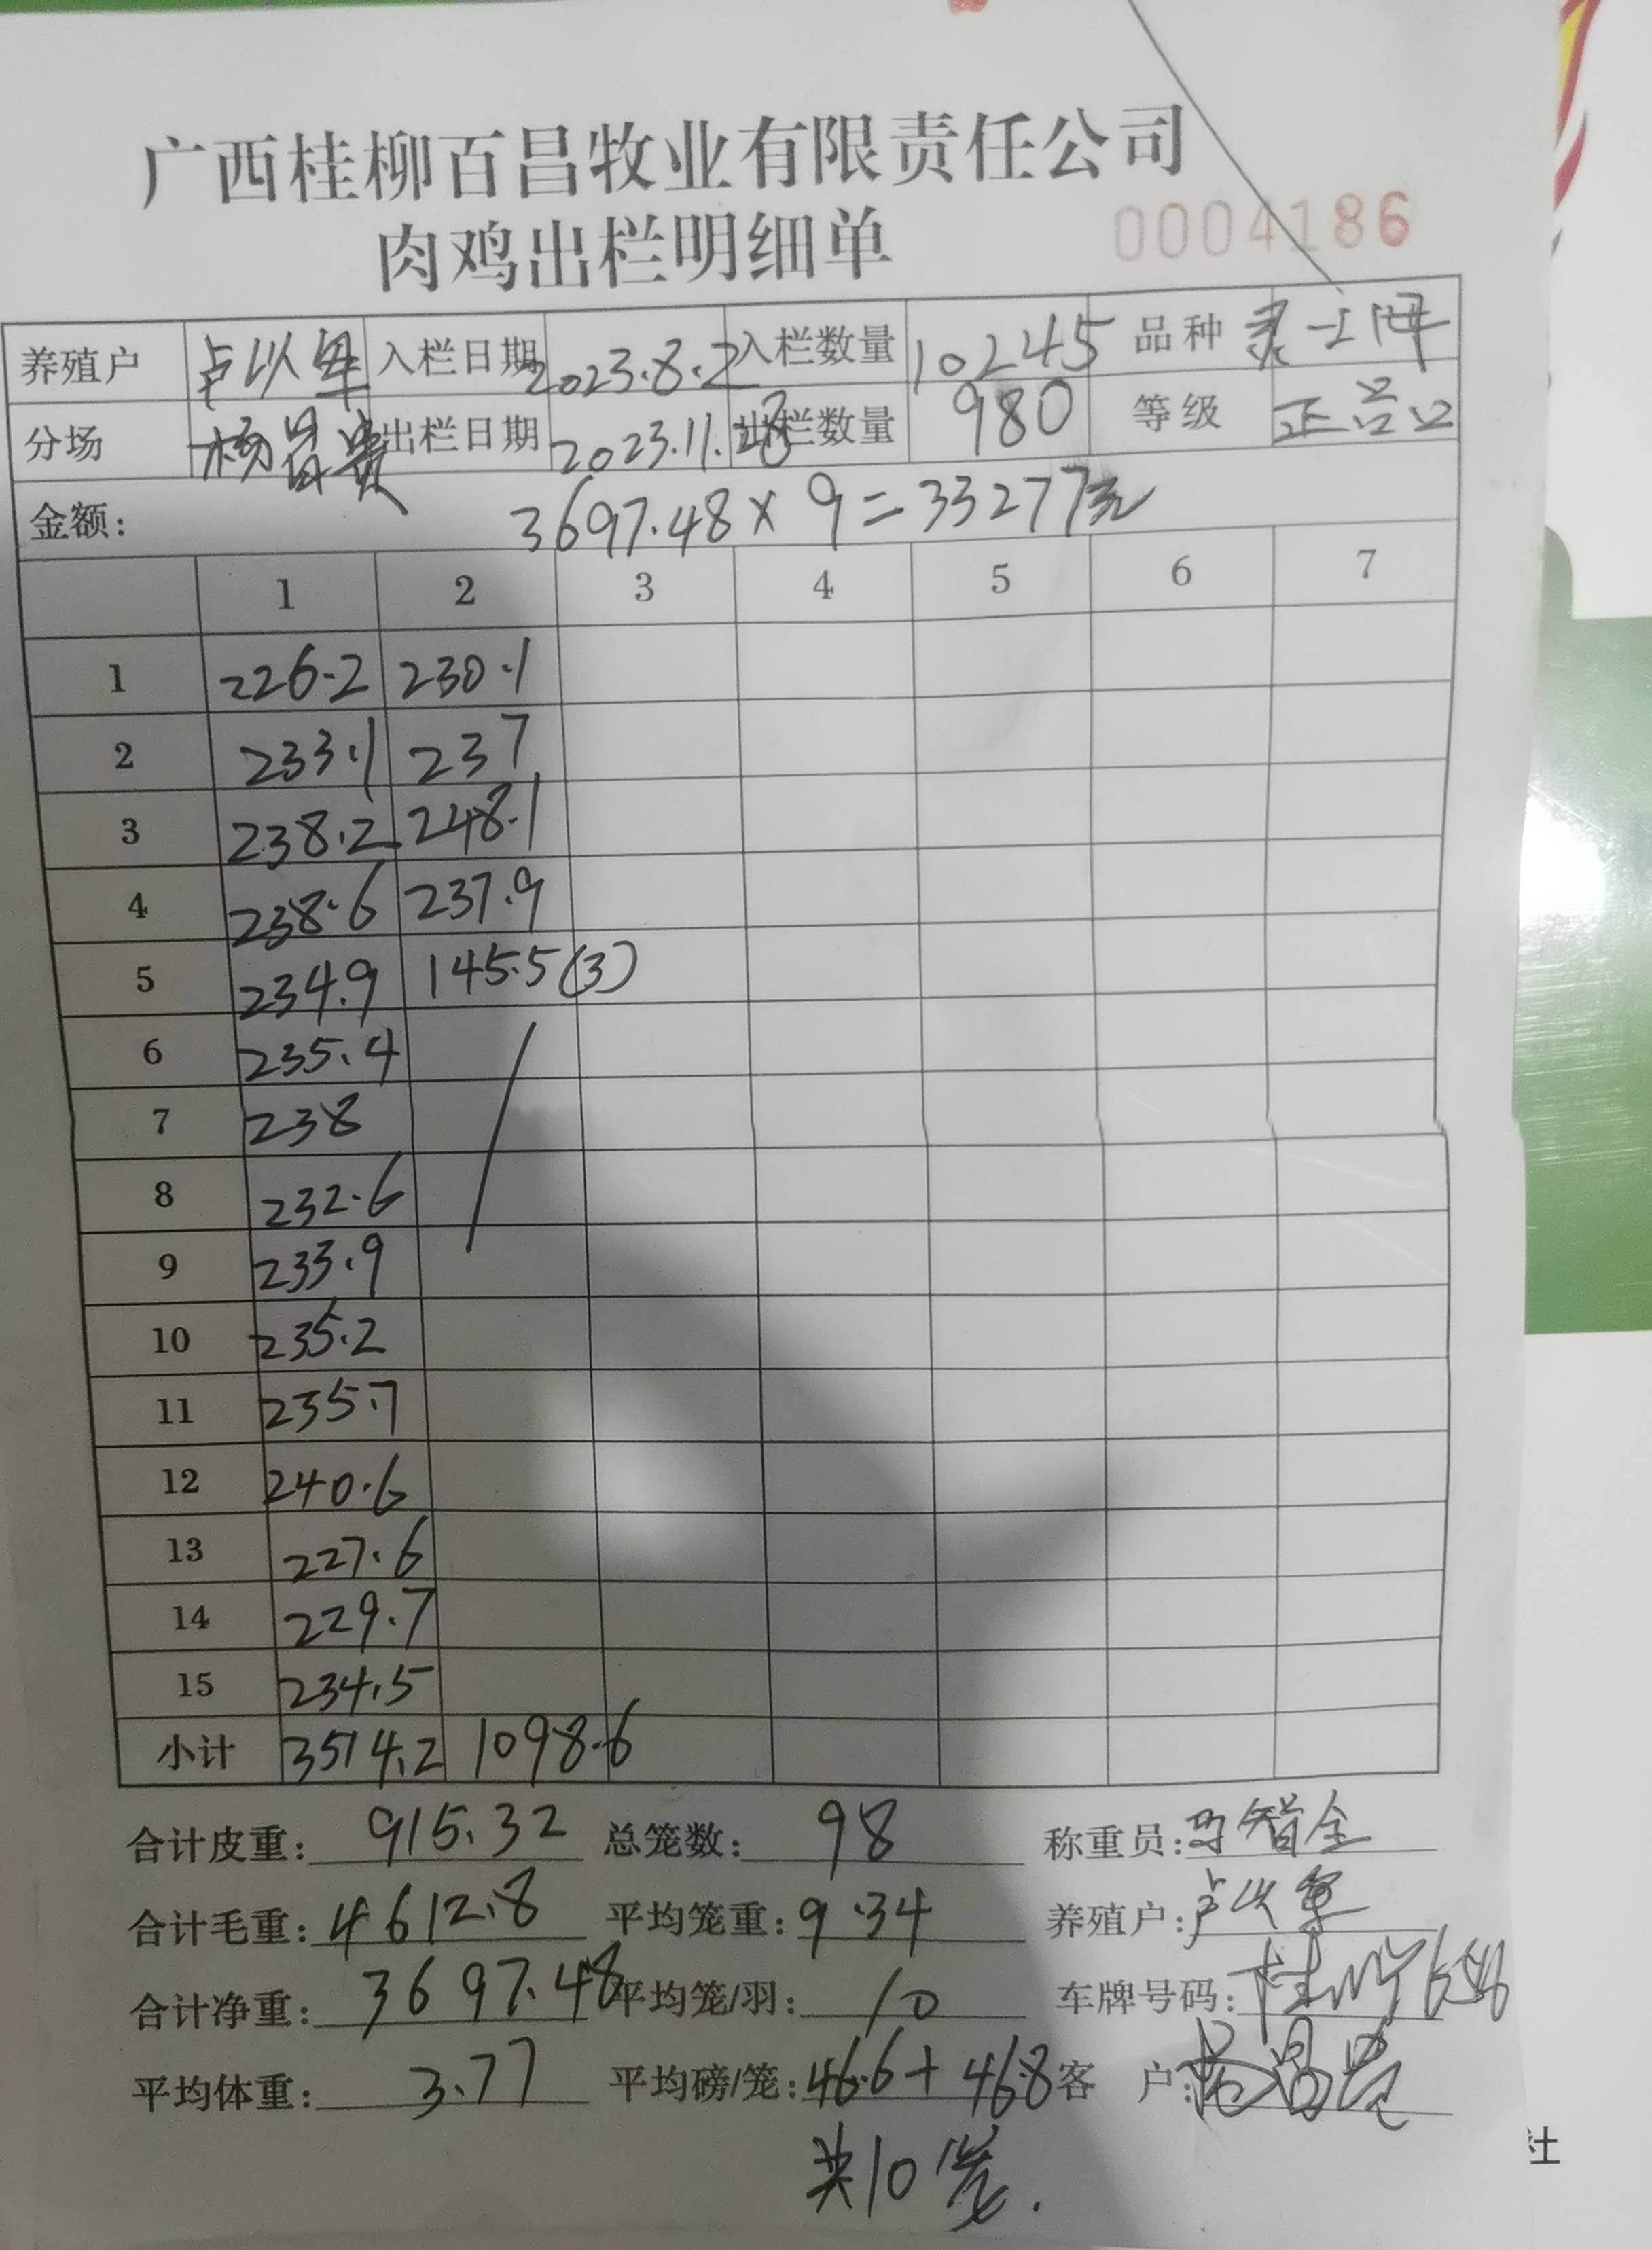 广西桂柳百昌牧业有限责任公司
肉鸡出栏明细单 0004186
养殖户 卢以军 入栏日期 2023.8.2 入栏数量 10245 品种
分场 杨昌贵 出栏日期 2023.11. 出栏数量 980 等级 正品
金额: 3697.48×9=33277元
1 2 3 4 5 6 7
1 226.2 230.1
2 233.1 237
3 238.2 248.1
4 238.6 237.9
5 234.9 145.5(3)
6 235.4
7 238
8 232.6
9 233.9
10 235.2
11 235.7
12 240.6
13 227.6
14 229.7
15 234.5
小计 3514.2 1098.6
合计皮重: 915.32 总笼数: 98 称重员:
合计毛重: 4612.8 平均笼重: 9.34 养殖户: 卢以军
合计净重: 3697.48 平均笼/羽: 10 车牌号码:
平均体重: 3.77 平均磅/笼: 46.6+46.8 客 户: 杨昌贵
共10笼.
社